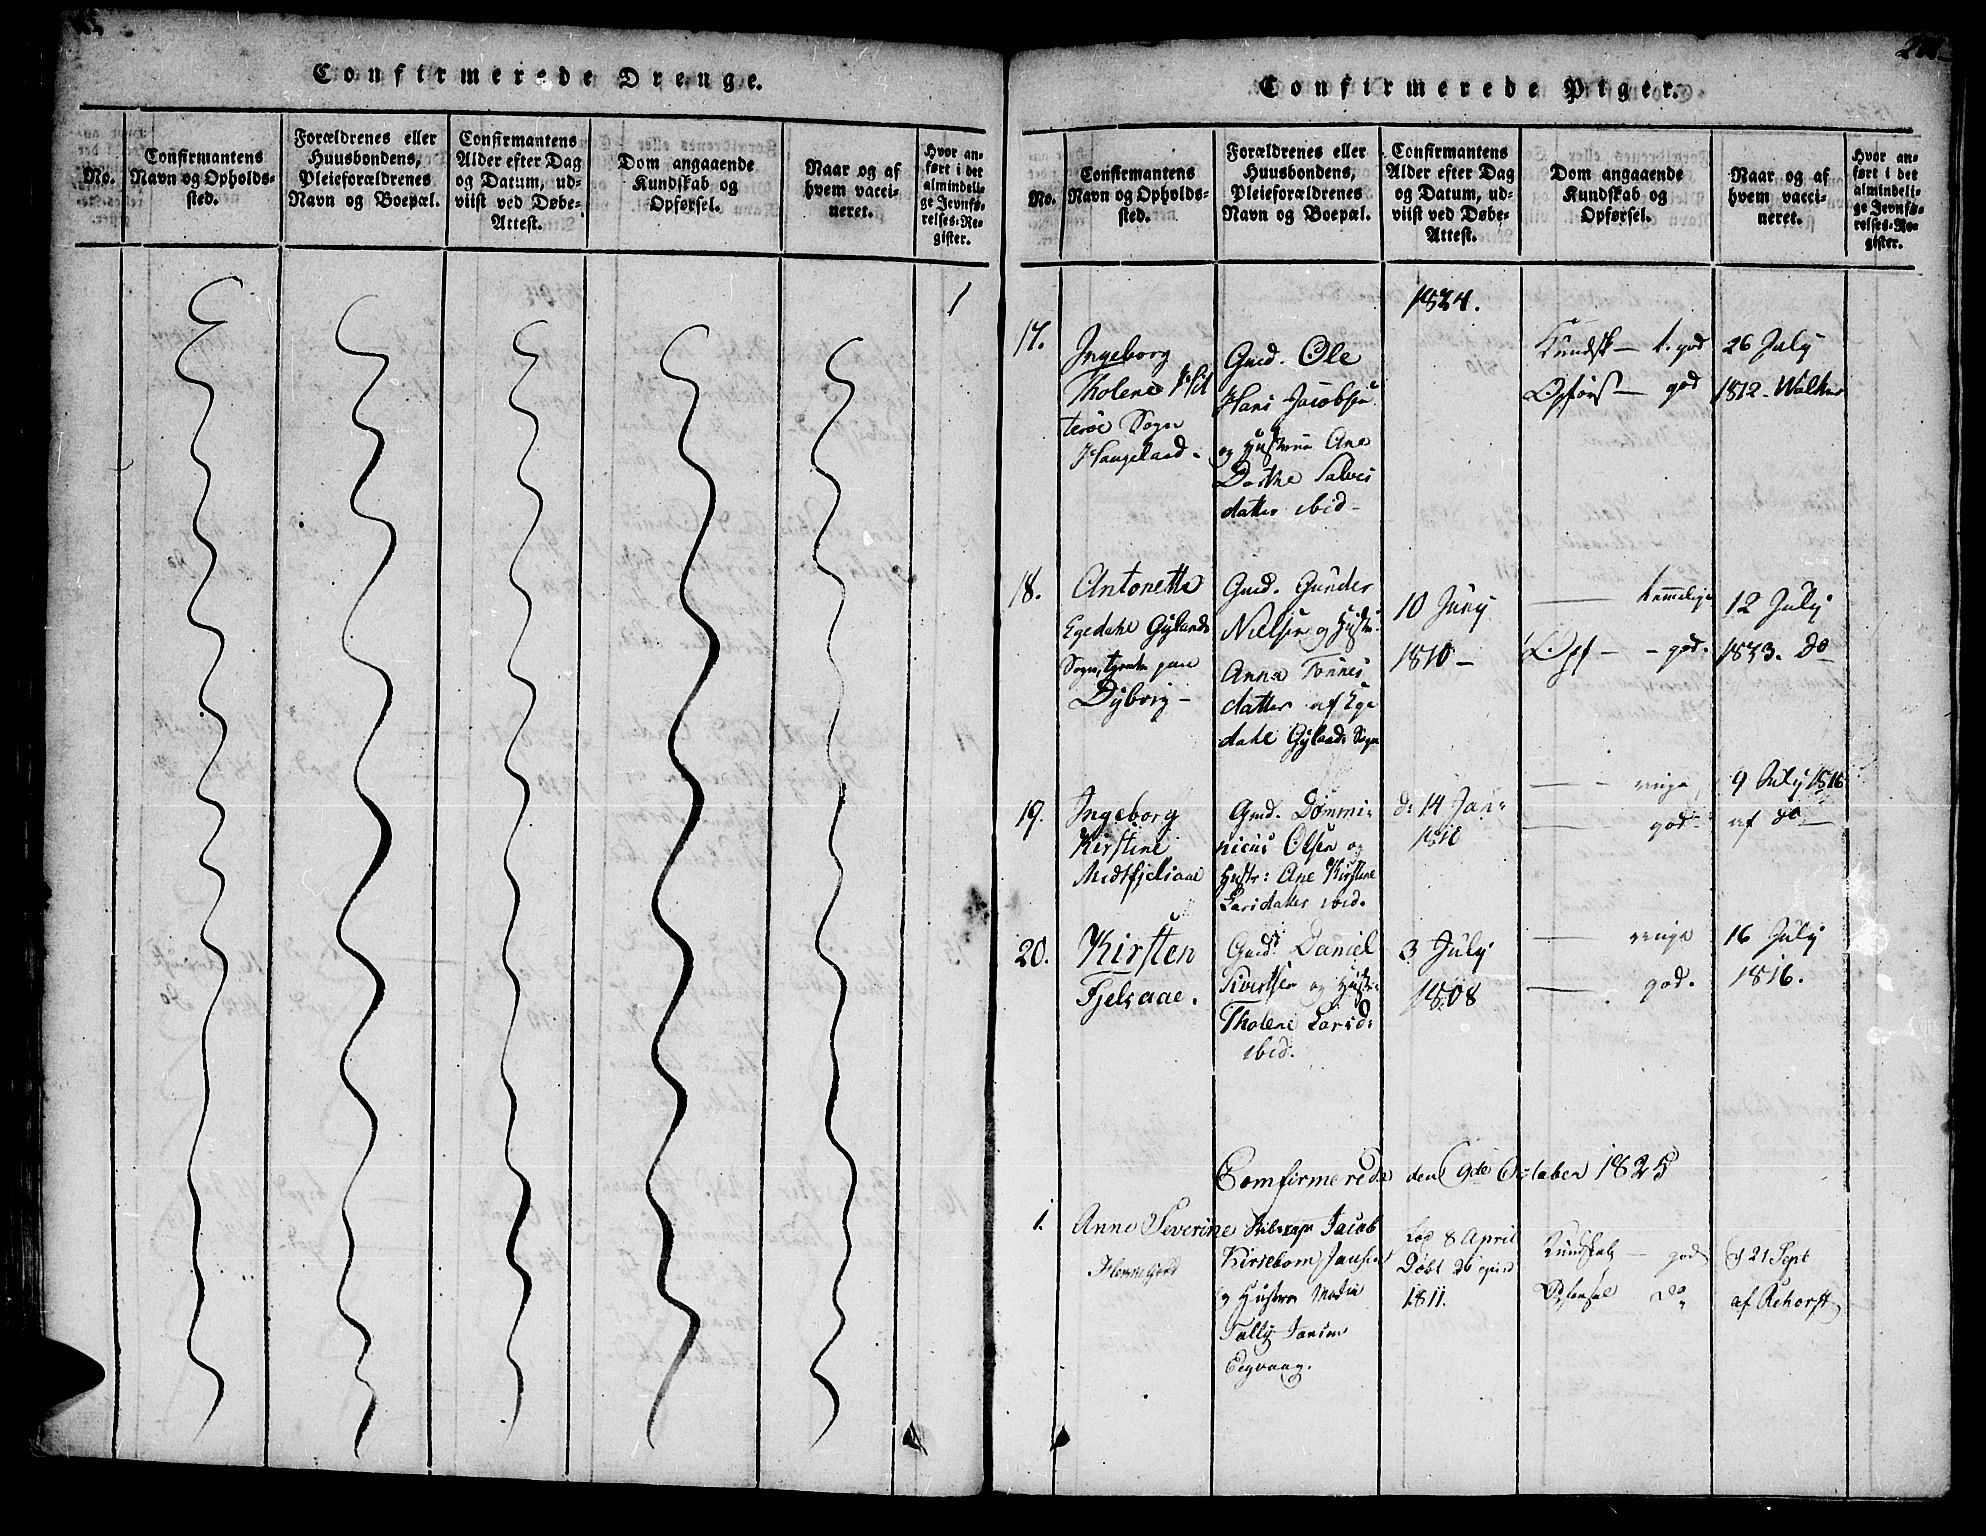 Confirmerede Drenge.
No.
Confirmantens
Navn og Opholds-
sted.
Forældrenes eller
Huusbondens,
Pleieforældrenes
Navn og Boepæl.
Confirmantens
Alder efter Dag
og Datum, ud-
viist ved Døbe-
Attest.
Dom angaaende
Kundskab og
Opførsel.
Naar og af
hvem vacci-
neret.
Hvor an-
ført i det
almindeli-
ge Jevnfø-
relses-Re-
gister.
Confirmerede Piger.
No.
Confirmantens
Navn og Opholds-
sted.
Forældrenes eller
Huusbondens,
Pleieforældrenes
Navn og Boepæl.
Confirmantens
Alder efter Dag
og Datum, ud-
viist ved Døbe-
Attest.
Dom angaaende
Kundskab og
Opførsel.
Naar og af
hvem vacci-
neret.
Hvor an-
ført i det
almindeli-
ge Jevnfø-
relses-Re-
gister.
1824.
17.
Ingeborg
Tholene Hit
terøe Sogn
Haugeland.
Gmd. Ole
Hans Jacobsen
og Hustrue Ane
Dorthe Salves
datter ibid-
Kundsk- t. god
Opførs- god
26 July
1812. Walther
18.
Antonette
Egedahl Gylands
Sogn, tjente paa
Dyborg-
Gmd. Gunder
Nielsen og Hustr.
Anna Tønnes
datter af Ege
dahl Gylands Sogn
10 Juny
1810-
temmelige
Opf- - god.
12 July
1833. do
19.
Ingeborg
Kirstine
Midtfjelsaae
Gmd. Dommi-
nicus Olsen og
Hustr: Ane Kirstine
Larsdatter ibid.
d: 14 Jan:
1810
- ringe
- god
9 July 1816
af do
20.
Kirsten
Fjelsaae.
Gmd: Daniel
Sivertsen og Hustr:
Tholene Larsd:
ibid.
3 July
1808
- ringe
- god.
16 July
1816.
Comfirmerede den 9de October 1825
1.
Anne Severine
Jacob
Kirsebom Jansen
og Hustroe
Tally Jansen
Egvaag.
8 April
Døbt 26
1811.
Kundskab - god
do
d 21 Sept
af Rehorst